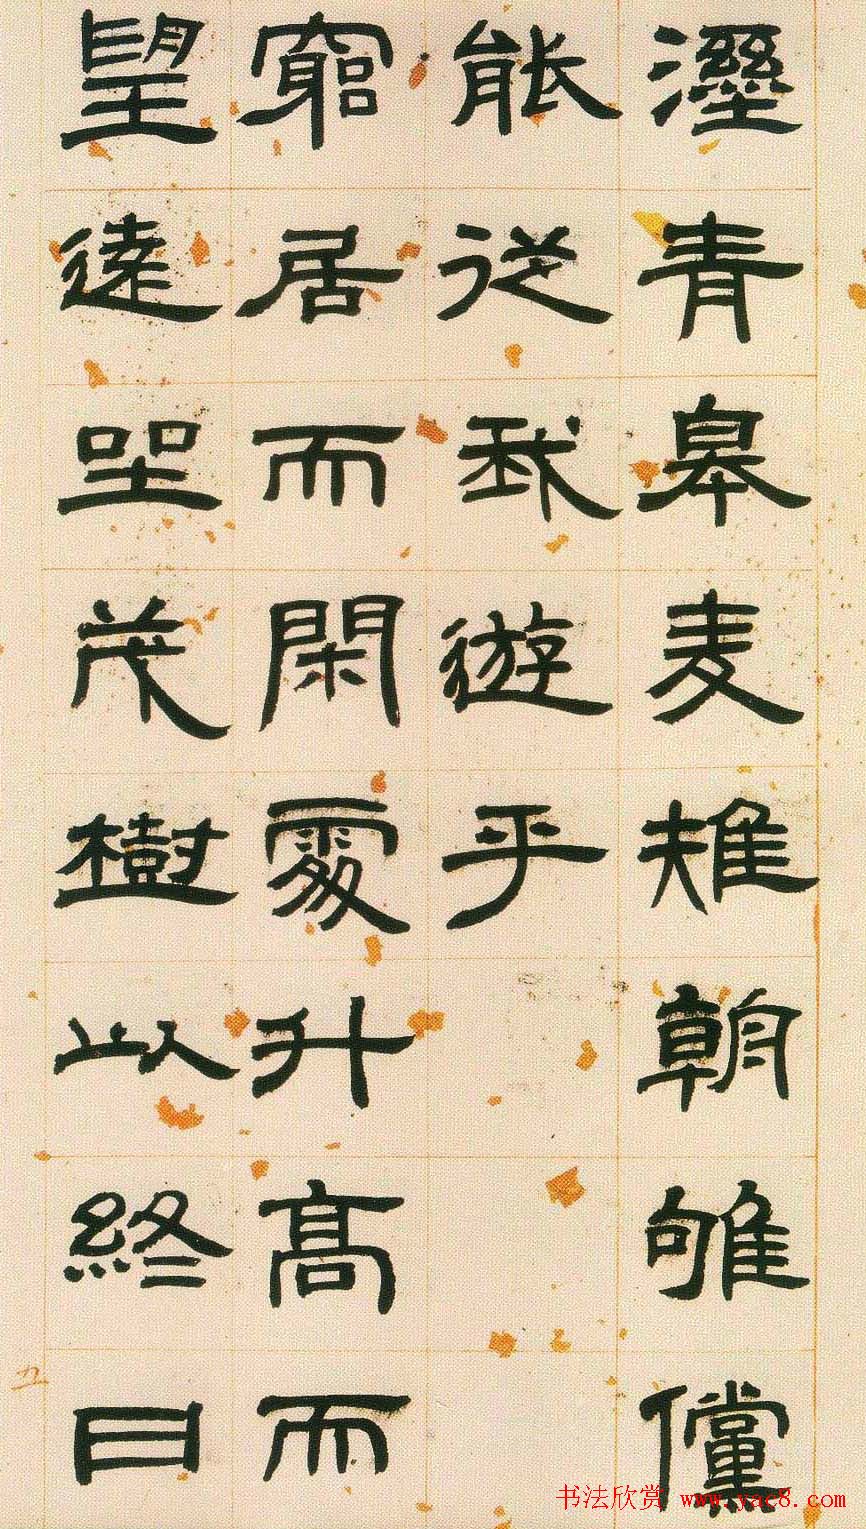 溼青皋麦雉朝雊儻
能從我遊乎
窮居而閑處升高而
望遠坐茂樹以終日
书法欣赏 www.yac8.com